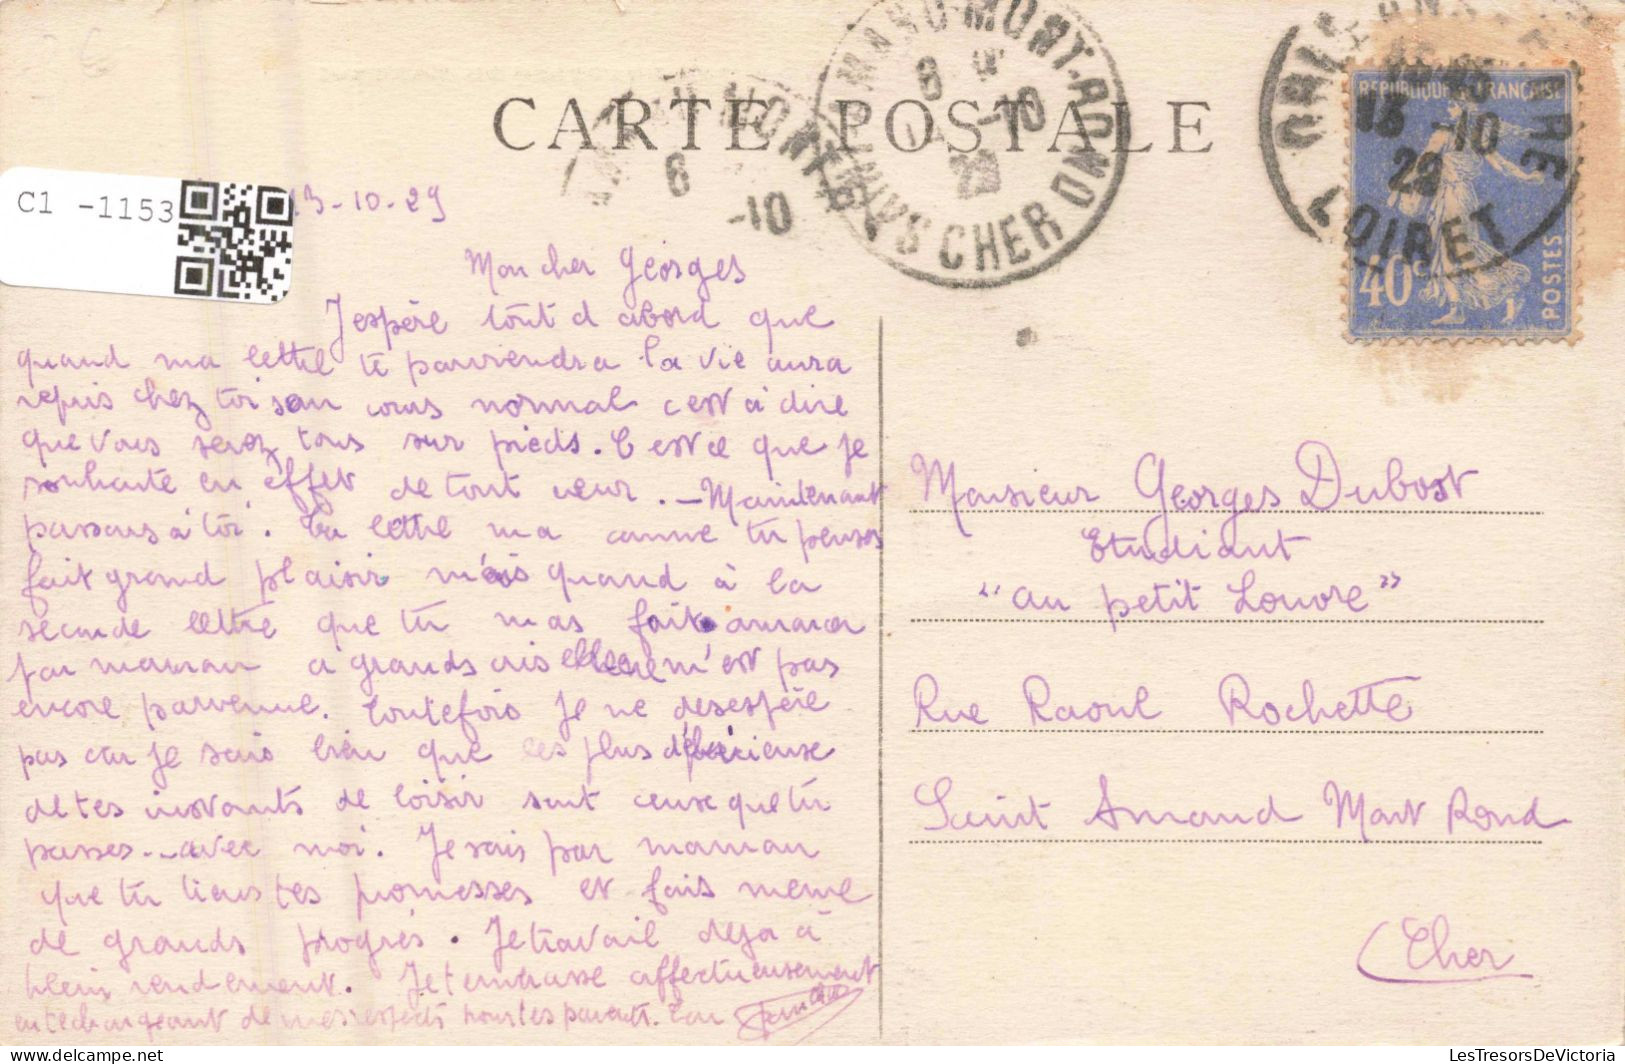 CARTE POSTALE
C1 -1153
13-10-29
ST AMAND-MONT-ROND CHER
8 -10 29
6 -10
ORLEANS GARE LOIRET
13 -10 29
REPUBLIQUE FRANÇAISE
40c
POSTES
Mon cher Georges
J espère tout d abord que
quand ma lettre te parviendra la vie aura
repris chez toi son cours normal c est à dire
que vous serez tous sur pieds. C est ce que je
souhaite en effet de tout cœur. - Maintenant
passons à toi. Ta lettre ma comme tu penses
fait grand plaisir mais quand à la
seconde lettre que tu mas fait annoncer
par maman a grands cris elle ne m'est pas
encore parvenue. Toutefois je ne desespère
pas car je sais bien que les plus
de tes instants de loisir sont ceux que tu
passes... avec moi. Je sais par maman
que tu tiens tes promesses et fais meme
de grands progrès. Je travaille deja à
plein rendement. Je t embrasse affectueusement
en te chargeant de mes respects pour tes parents. Ton
Monsieur Georges Dubost
Etudiant
"au petit Louvre"
Rue Raoul Rochette
Saint Amand Mont Rond
(Cher)
LesTresorsDeVictoria